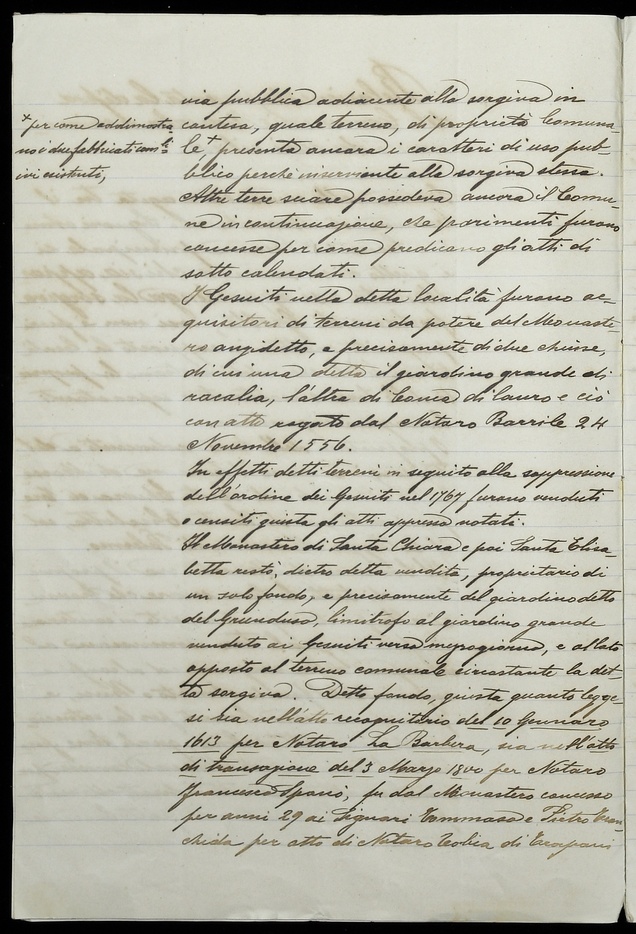 via pubblica adiacente alla sorgiva in
contesa, quale terreno, di proprietà Comuna=
le + presenta ancora i caratteri di uso pub=
blico perché inserviente alla sorgiva stessa.
+ per come addimostra
no i due fabbricati
ivi esistenti,
Altre terre sciare possedeva ancora il Comu=
ne in continuazione, che parimenti furono
concesse per come predicano gli atti di
sotto calendati.
I Gesuiti nella detta località furono ac=
quisitori di terreni da potere del Monaste=
ro anzidetto, e precisamente di due chiuse,
di cui una detta il giardino grande di
racalia, l'altra di Conca di lauro e ciò
con atto rogato dal Notaro Barrile 24
Novembre 1556.
In effetti detti terreni in seguito alla soppressione
dell'ordine dei Gesuiti nel 1767 furono venduti
o censiti giusta gli atti appresso notati.
Il Monastero di Santa Chiara e poi Santa Elisa
betta restò, dietro detta vendita, proprietario di
un solo fondo, e precisamente del giardino detto
del limitrofo al giardino grande
venduto ai Gesuiti verso mezzogiorno, e al lato
opposto al terreno comunale circostante la det=
ta sorgiva. Detto fondo, giusta quanto legge=
si sia nell'atto recognitorio del 10 Gennaro
1613 per Notaro La Barbera, sia nell'atto
di transazione del 3 Marzo 1800 per Notaro
Francesco Spanò, fu dal Monastero concesso
per anni 29 ai Signori Tommaso e Pietro
per atto di Notaro di Trapani